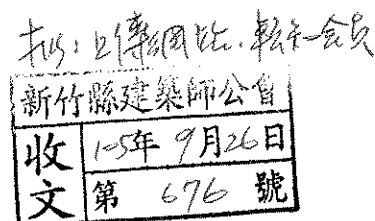 擬:上傳網站、轉知會員
新竹縣建築師公會
收文
105年9月26日
第 676 號